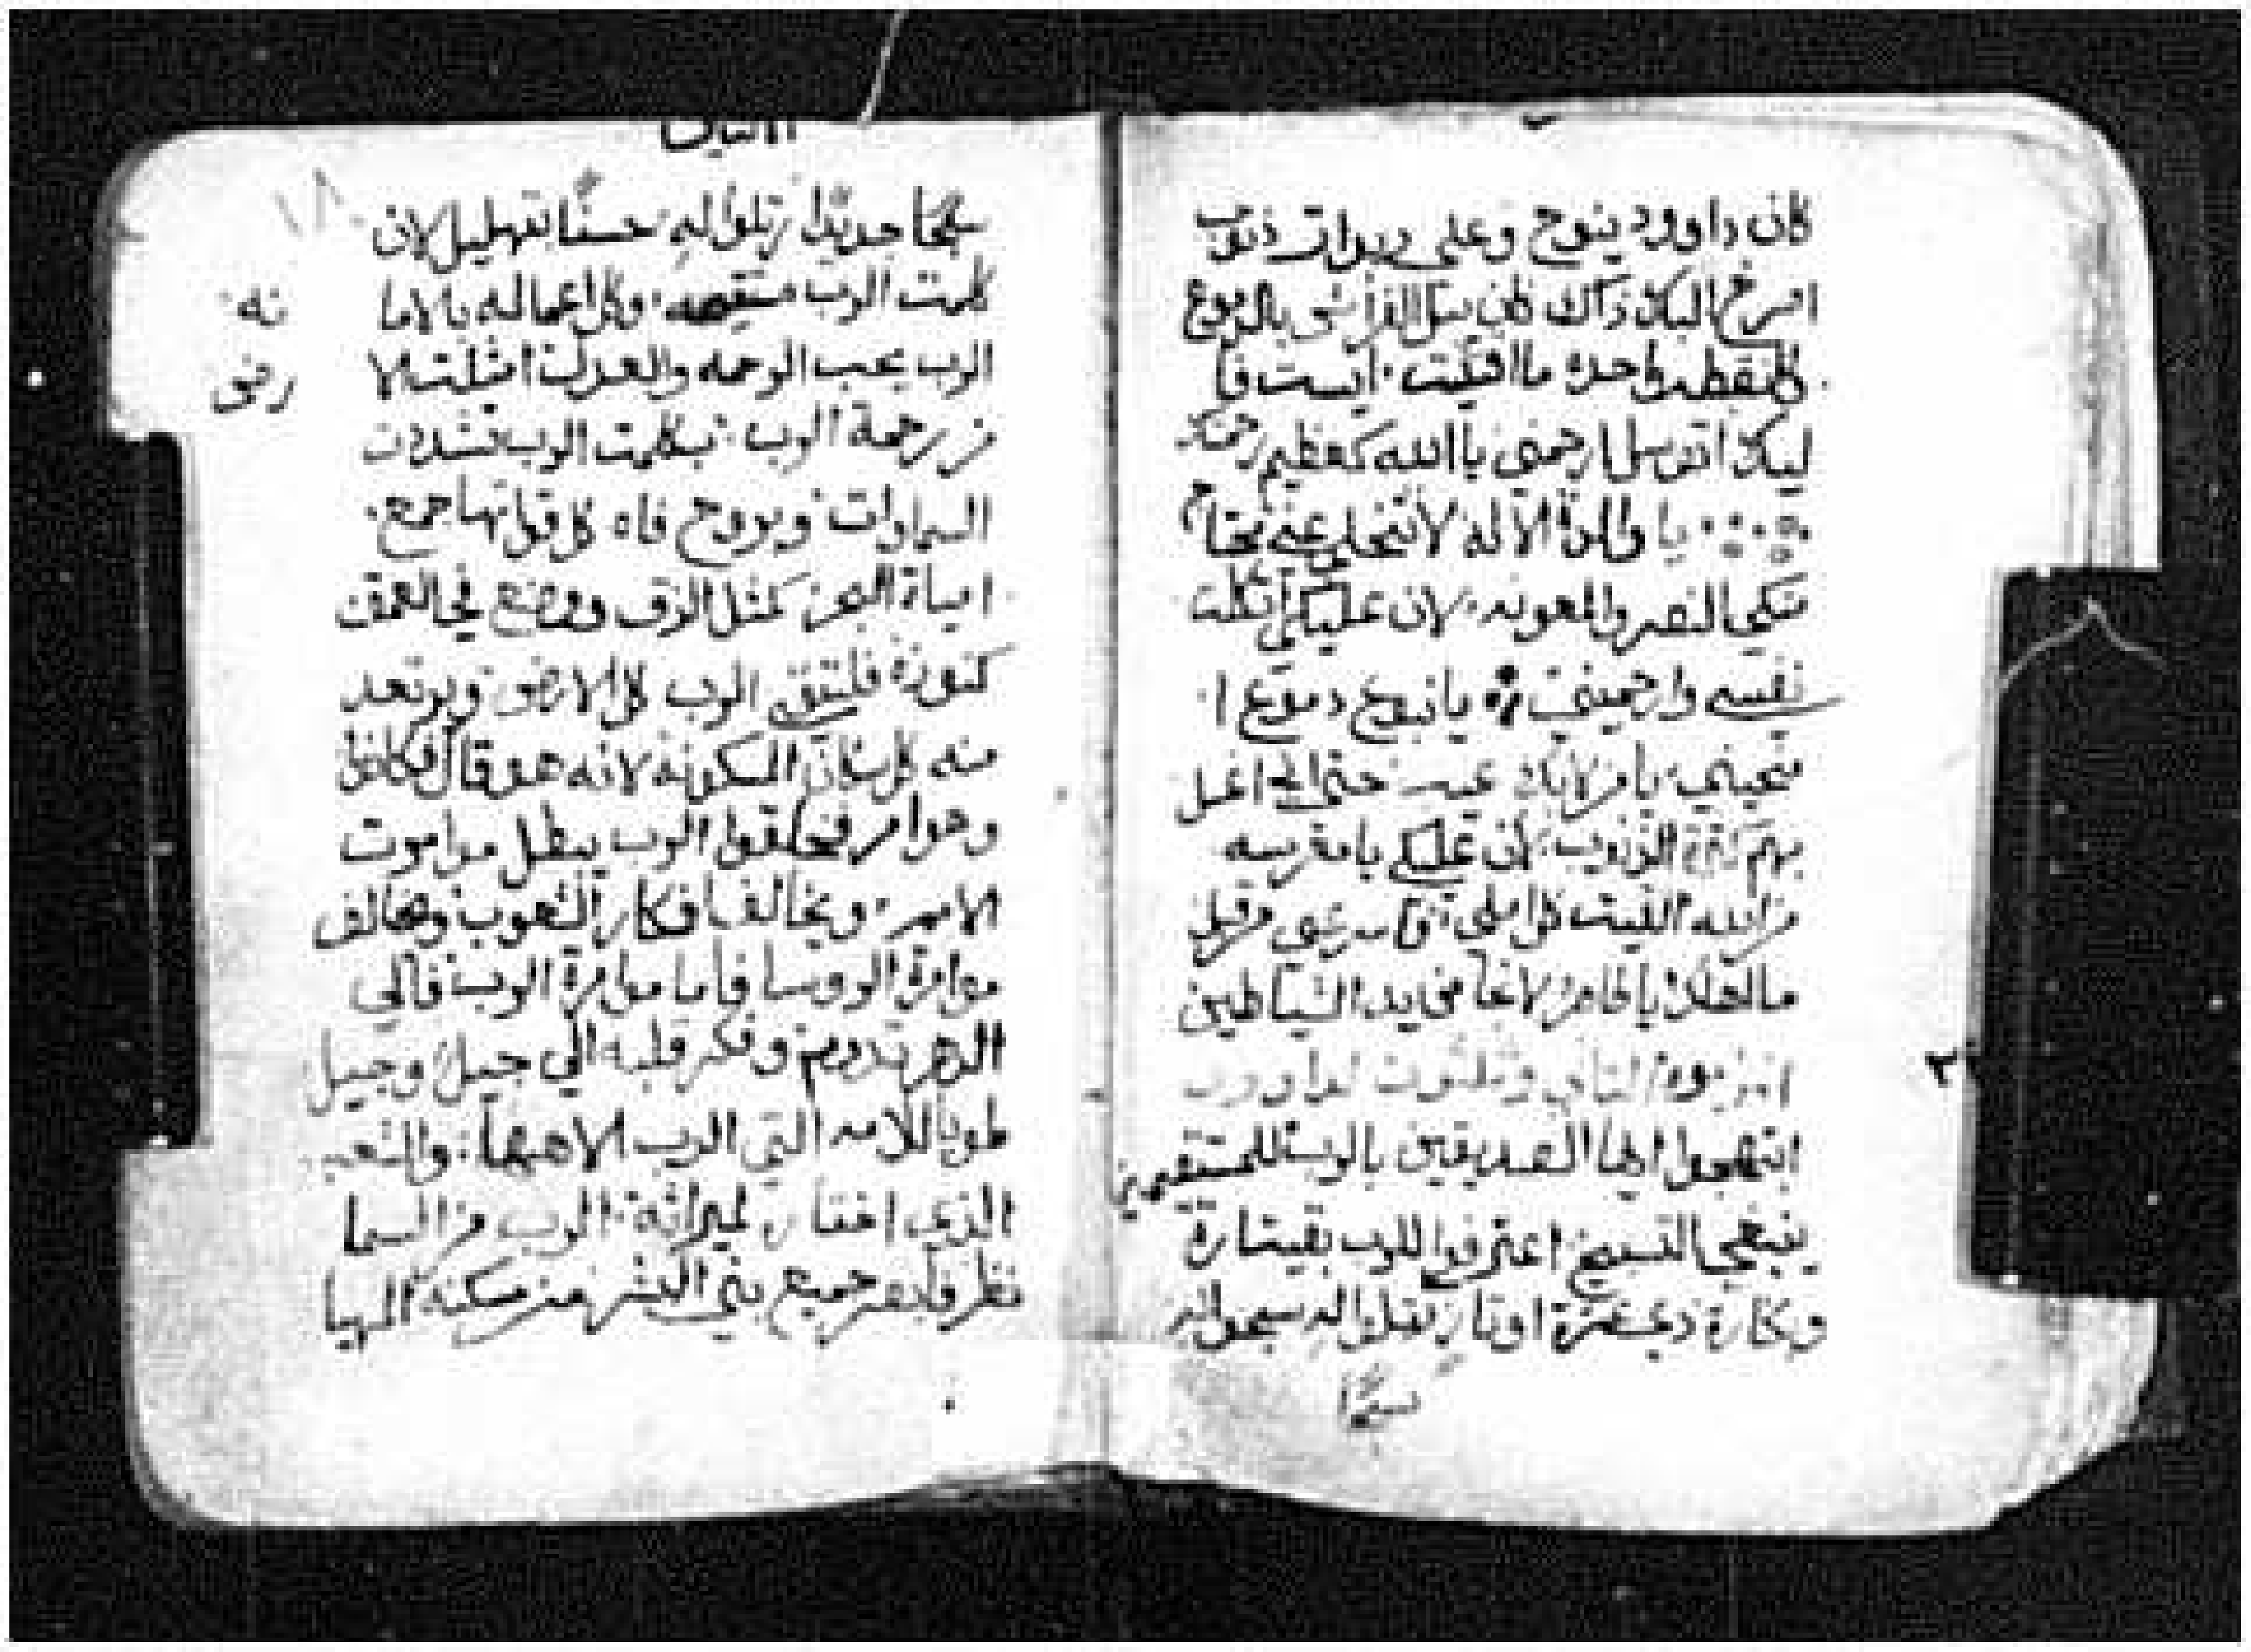 كان داوود ينوح وعلى ذنوب
اسرع البكا ذاك كان يبل الفراش بالدموع
ولا نقطه واحده ما اقنيت ايست فا
ليك اتوسل ارحمني يا الله كعظيم رحمتك
يا والدة الاله لا تتخلي عني محتاج
منكي النصر والمعونه لان عليكي اتكلت
نفسي وارحميني يا ينبوع دموع ا
منحيني يا من حتى اغسل
بهم الذنوب لان عليكي يا عروسه
الله القيت كل املي
يا طاهر الشياطين
المزمور التاني وثلثون لداوود
ابتهجوا ايها الصديقين بالرب للمستقيمين
ينبغي التسبيح اعترفوا للرب بقيتارة
وبكنارة ذي عشرة اوتار رتلوا له سبحوا له
سبحا
سبحا جديدا رتلوا له حسنا بتهليل لان
كلمت الرب مستقيمه وكل اعماله بالاما
نه
الرب يحب الرحمه والعدل امتلت الا
رض
من رحمة الرب بكلمت الرب تشددت
السماوات وبروح فاه كل قواتها جمع
امياة البحر كمثل الزق ووضع في العمق
كنوزه فلتتقي الرب كل الارض ويرتعد
منه كل سكان المسكونه لانه هو قال فكانوا
وهو امر فخلقوا الرب يبطل موامرت
الامم ويخالف افكار الشعوب ويخالف
موامرة الروسا فاما موامرة الرب فالي
الدهر تدوم وفكر قلبه الي جيل وجيل
طوبا للامه التي الرب الاهها والشعب
الذي اختار لميراثه الرب من السما
نظر فابصر جميع بني البشر من مسكنه المهيا